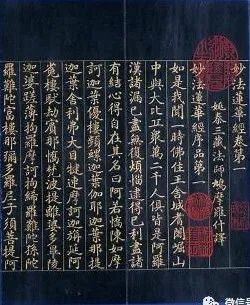 妙法蓮華經卷第一
姚秦三藏法師鳩摩羅什譯
妙法蓮華經序品第一
如是我聞一時佛住王舍城耆闍崛山
中與大比丘眾萬二千人俱皆是阿羅
漢諸漏已盡無復煩惱逮得己利盡諸
有結心得自在其名曰阿若憍陳如摩
訶迦葉優樓頻螺迦葉伽耶迦葉那提
迦葉舍利弗大目犍連摩訶迦旃延阿
㝹樓馱劫賓那憍梵波提離婆多畢陵
迦婆蹉薄拘羅摩訶拘絺羅難陀孫陀
羅難陀富樓那彌多羅尼子須菩提阿
微信